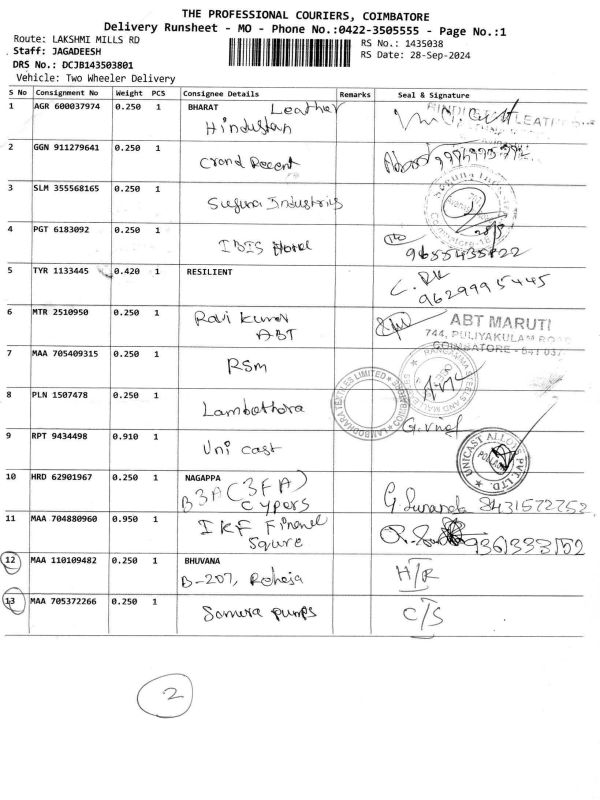 THE PROFESSIONAL COURIERS, COIMBATORE
Delivery Runsheet - MO - Phone No.:0422-3505555 - Page No.:1
Route: LAKSHMI MILLS RD
RS No.: 1435038
Staff: JAGADEESH
RS Date: 28-Sep-2024
DRS No.: DCJB143503801
Vehicle: Two Wheeler Delivery
S No Consignment No Weight PCS Consignee Details Remarks Seal & Signature
1 AGR 600037974 0.250 1 BHARAT Leather
Hindustan
2 GGN 911279641 0.250 1
3 SLM 355568165 0.250 1
Suguna Industries
4 PGT 6183092 0.250 1
IBIS Hotel 9655435822
5 TYR 1133445 0.420 1 RESILIENT
9629995445
6 MTR 2510950 0.250 1 Ravi Kumar ABT MARUTI
ABT 744, PULIYAKULAM ROAD
COIMBATORE - 641 037
7 MAA 705409315 0.250 1
RSM
8 PLN 1507478 0.250 1
LAMBODHARA TEXTILES LIMITED
9 RPT 9434498 0.910 1
Uni cast UNICAST ALLOYS PVT. LTD.
10 HRD 62901967 0.250 1 NAGAPPA
B3A (3FA)
G. Sunanda 8431572752
11 MAA 704880960 0.950 1
IKF Finance
9361333152
12 MAA 110109482 0.250 1 BHUVANA
B-207, Raheja H/R
13 MAA 705372266 0.250 1
pumps C/S
2